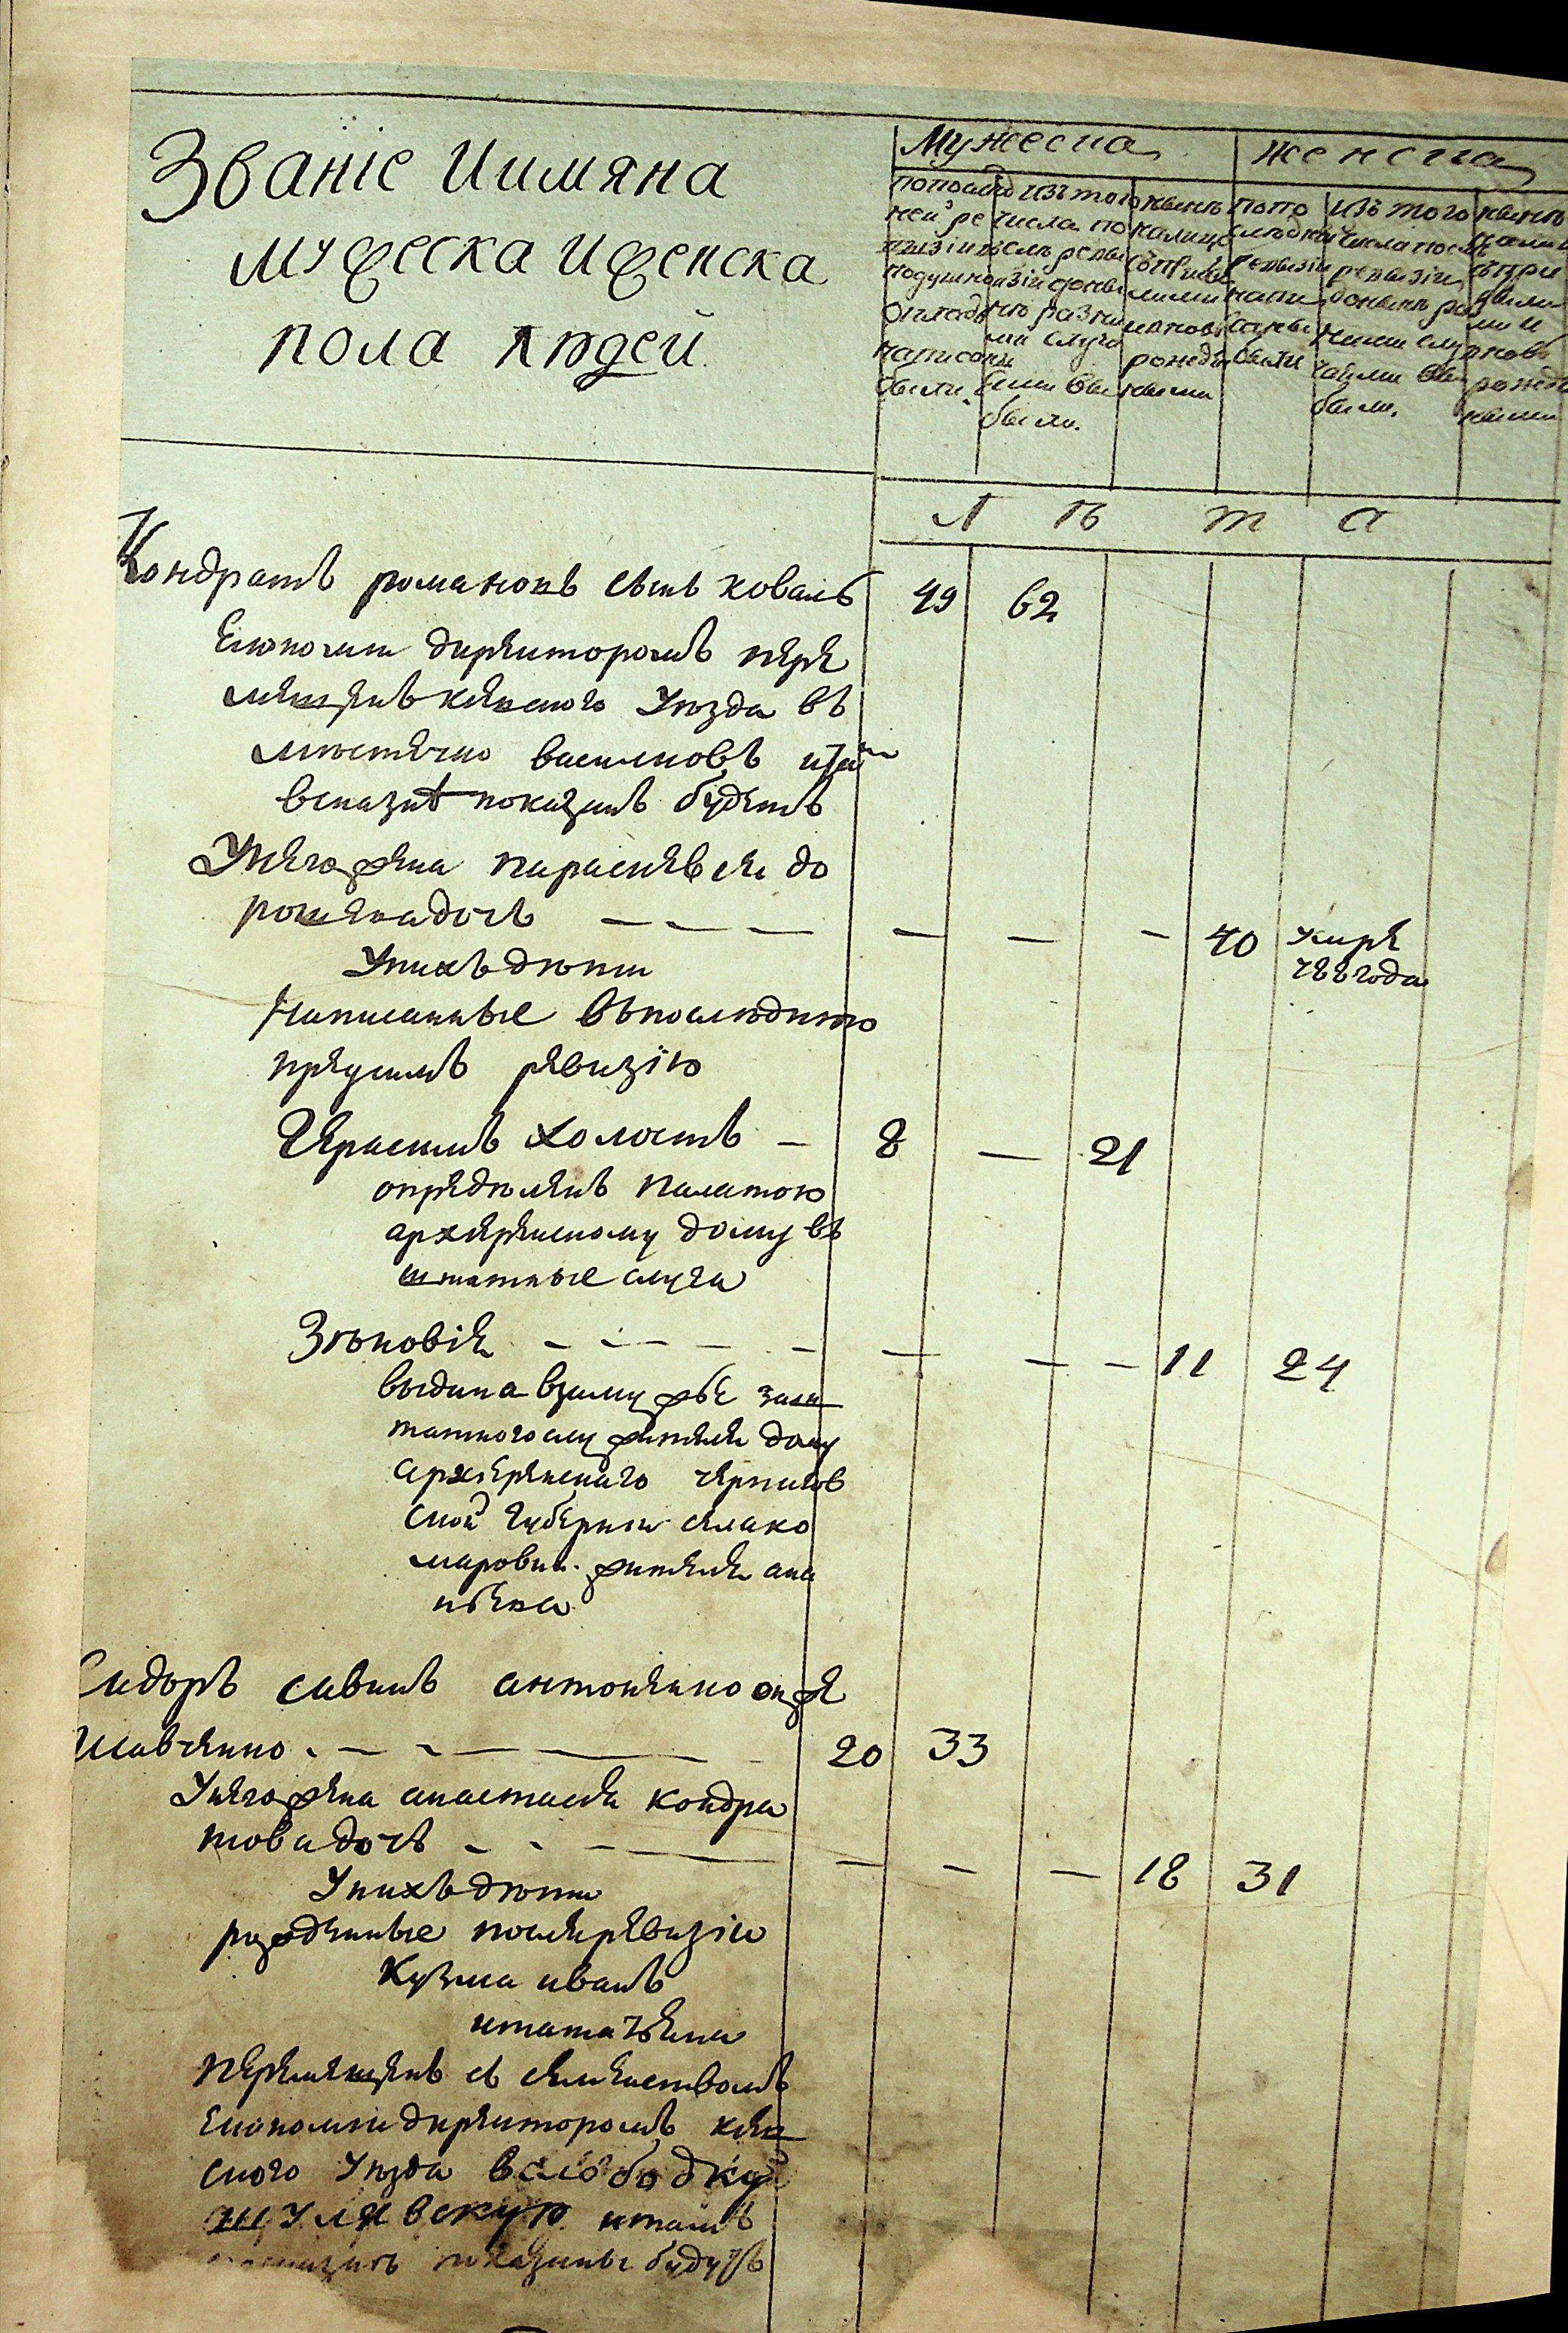 Званіе Иимяна
мужеска иженска
пола людей
Мужеска
Женска
попослѣд
ней ре
визіи въ
подушной
окладъ
написаны
были.
изъ того
числа по
слѣ реви
зіи разны
ми случа
ями вы
были.
нынѣ
налицо
съ
ивновь
рожден
ными
попо
слѣдней
ревизіи
напи
саны
были
изъ того
числа послѣ
ревизіи
разны
ми слу
чаями вы
были.
нынѣ
съ при
были
ми и
вновь
рожден
ными
Л Ѣ Т А
Кондратъ романовъ сынъ коваль 49 62
Економіи директоромъ пере
мещенъ киевского Уезда въ
мѣстечко василковъ итам
всказкѣ показанъ будетъ
Унего жена парасковея до
рошенкадочь — — — — — — 40 умре
788 года
Унихъ дѣти
Написанные въпоследнюю
предсимъ ревизію
Герасимъ холостъ — 8 — 21
определенъ палатою
архиерейскому дому въ
штатные слуги
Зѣновія — — — — — — — — 11 24
выдана взамужье заш
татного служителя дому
архіерейскаго чернигов
ской губернии села ко
маровки жителя ана
ньева
Сидоръ савинъ антоненко онже
шавченко — — — — 20 33
Унегожена анастасия кондра
това дочь — — — — — — — 18 31
Унихъ дѣти
рожденные послеревизіи
Кузма иванъ
итатаѣяна
перемещенъ съ семействомъ
Економіи директоромъ киев
ского Уезда вслободку
шулявскую итамъ
показаны будутъ